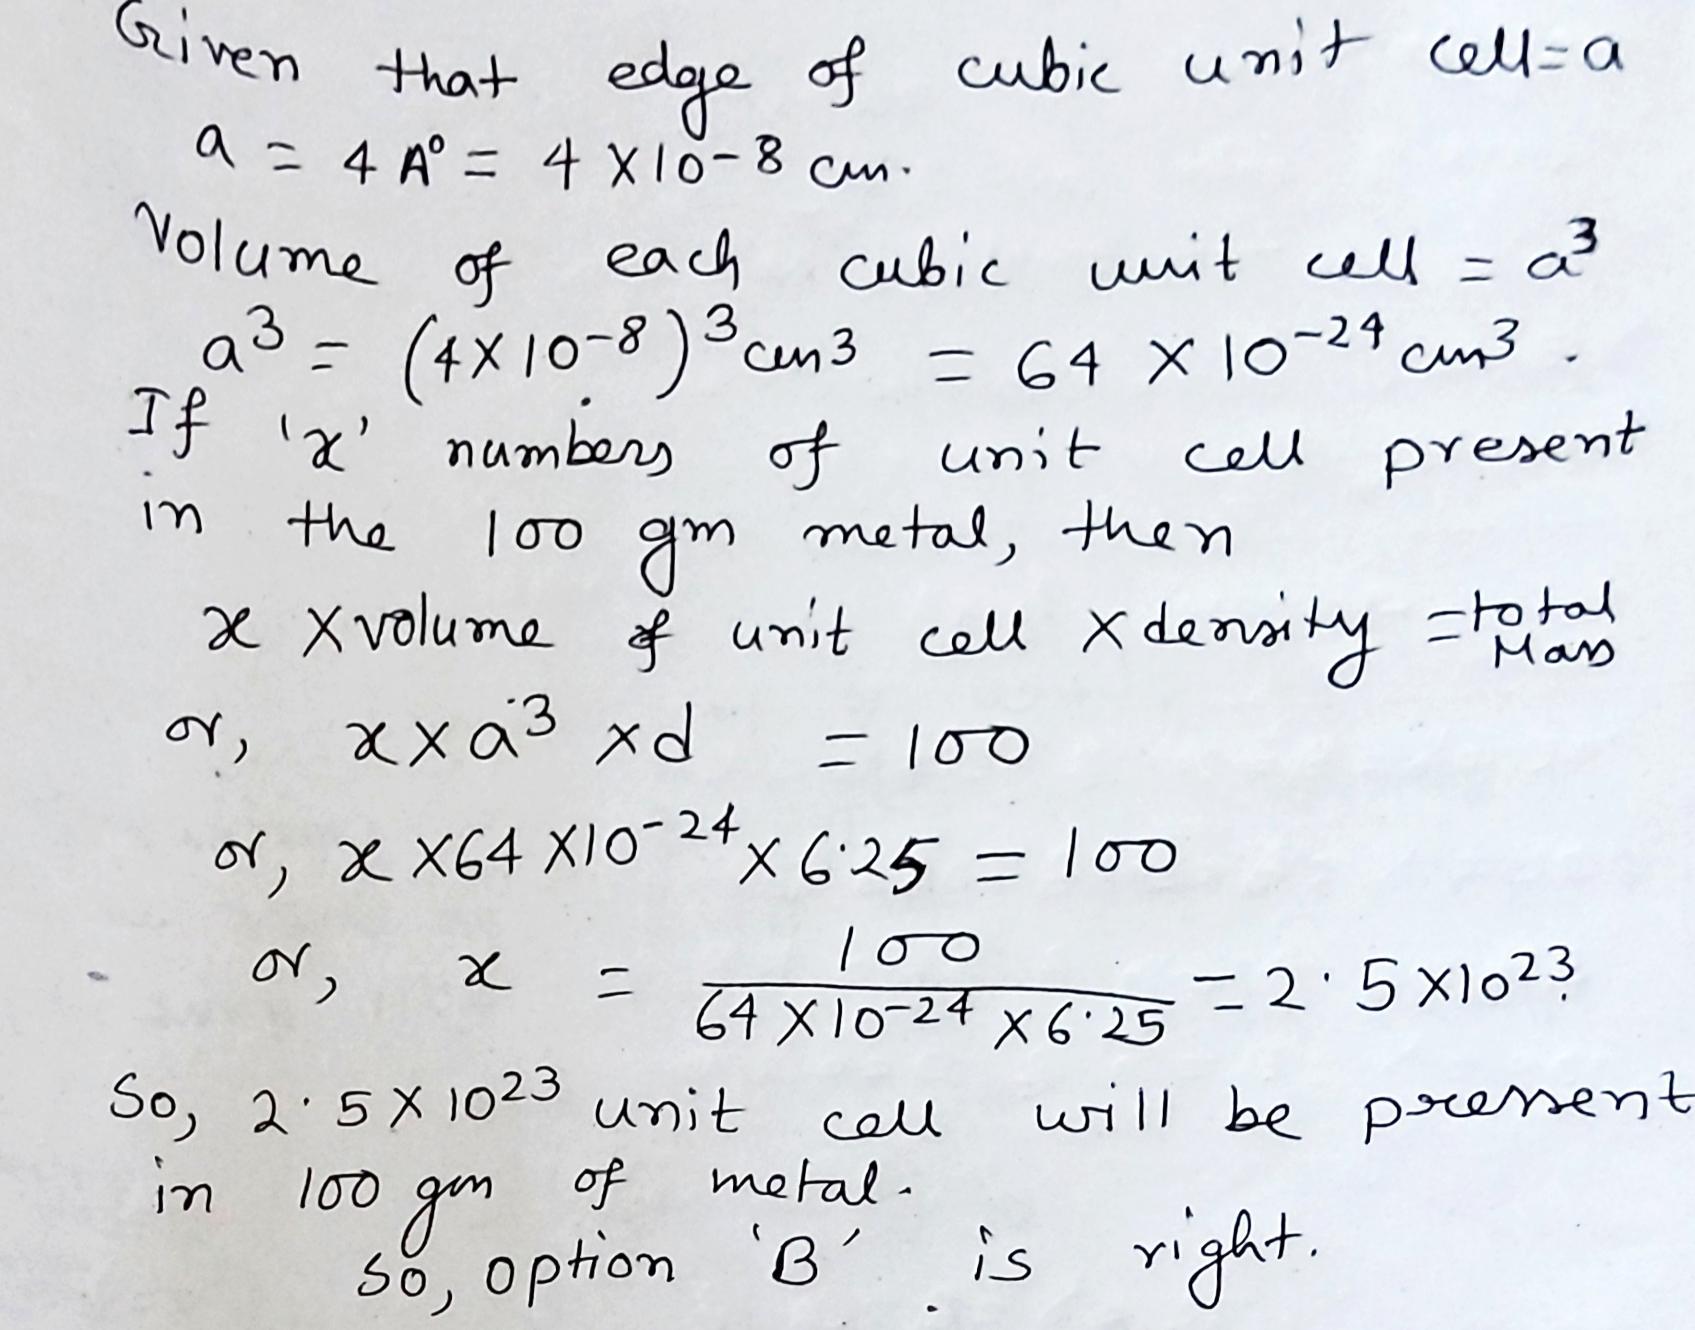 Given that edge of cubic unit cell=a
a = 4 A° = 4 X10-8 cm.
Volume of each cubic unit cell = a³
a³ = (4X10⁻⁸)³ cm3 = 64 X 10⁻²⁴ cm³.
If 'x' numbers of unit cell present
in the 100 gm metal, then
x X volume of unit cell X density = total Mass
or, x x a³ x d = 100
or, x X64 X10⁻²⁴ x 6.25 = 100
or, x = 100 / 64 X 10⁻²⁴ x 6.25 = 2.5 x10²³.
So, 2.5 X 10²³ unit cell will be pressent
in 100 gm of metal.
So, option 'B' is right.